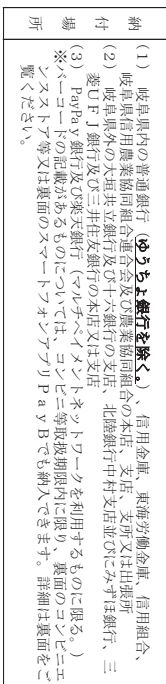 納付場所
（１）岐阜県内の普通銀行（ゆうちょ銀行を除く。）、信用金庫、東海労働金庫、信用組合、
岐阜県信用農業協同組合連合会及び農業協同組合の本店、支店、支所又は出張所
（２）岐阜県外の大垣共立銀行及び十六銀行の支店、北陸銀行中村支店並びにみずほ銀行、三
菱ＵＦＪ銀行及び三井住友銀行の本店又は支店
（３）PayPay銀行及び楽天銀行（マルチペイメントネットワークを利用するものに限る。）
※バーコードの記載があるものについては、コンビニ等取扱期限内に限り、裏面のコンビニエ
ンスストア等又は裏面のスマートフォンアプリＰａｙＢでも納入できます。詳細は裏面をご
覧ください。